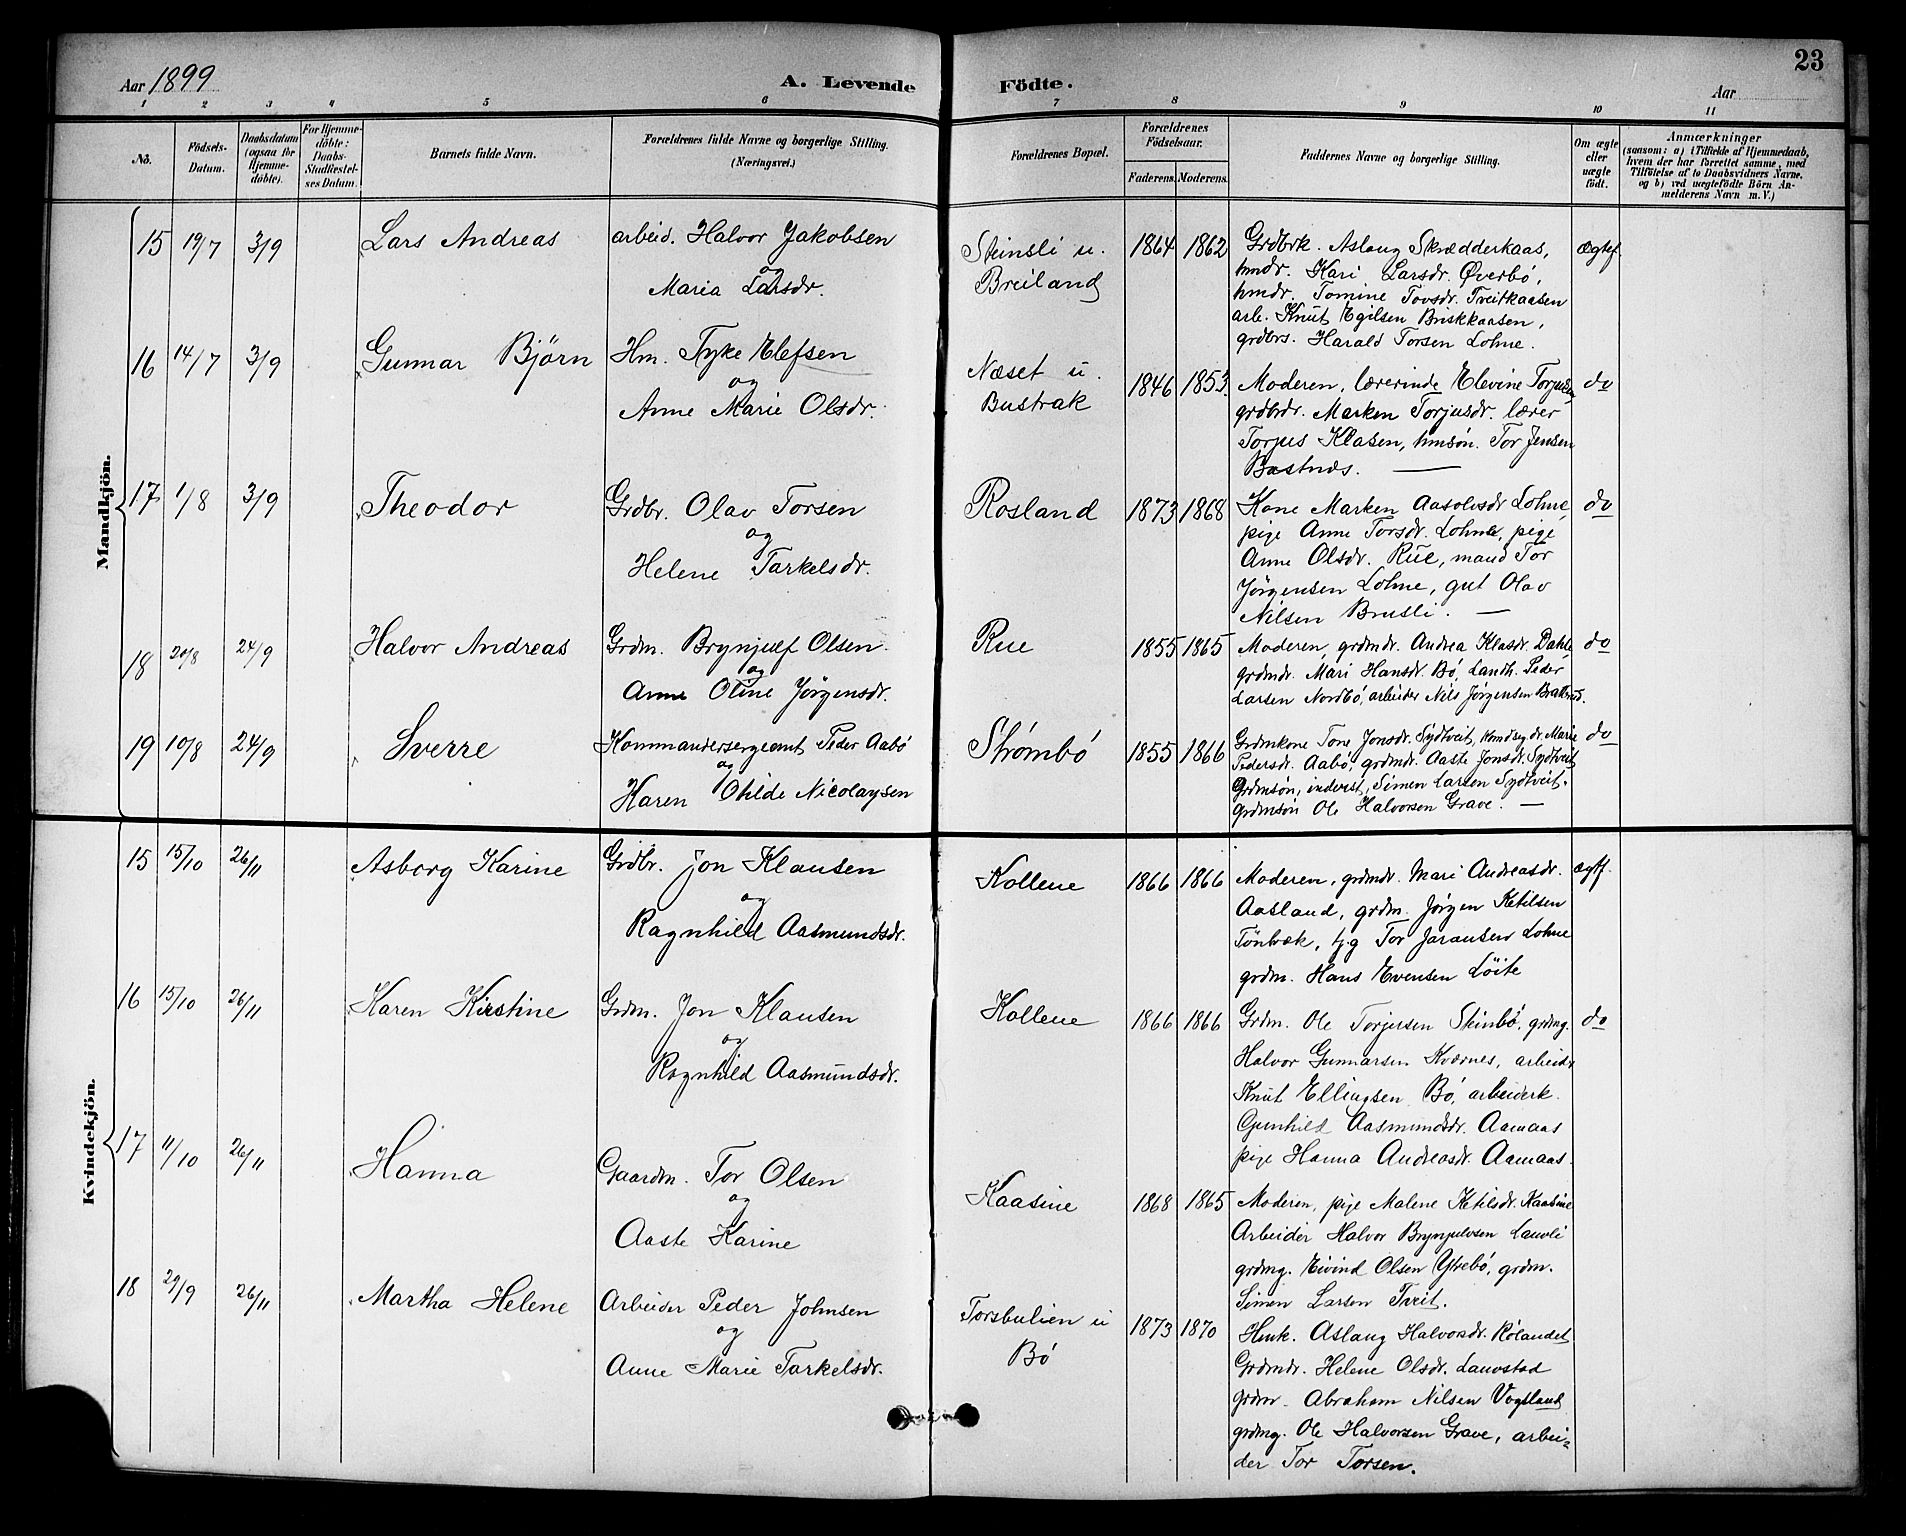 23
Aar 1899
A. Levende Födte.
Aar
1 2 3 4 5 6 7 8 9 10 11
No.
Födsels-Datum.
Daabsdatum (ogsaa for Hjemme-döbte).
For Hjemme-döbte: Daabs-Stadfæstel-ses Datum.
Barnets fulde Navn.
Forældrenes fulde Navne og borgerlige Stilling.
(Næringsvei.)
Forældrenes Bopæl.
Forældrenes Födselsaar.
Faderens. Moderens.
Faddernes Navne og borgerlige Stilling.
Om ægte eller uægte födt.
Anmærkninger
(saasom: a) i Tilfælde af Hjemmedaab,
hvem der har forrettet samme, med
Tilföielse af to Daabsvidners Navne.
og b) ved uægtefödte Börn An-
melderens Navn m. V.)
Mandkjön.
15 19/7 3/9 Lars Andreas
arbeid. Halvor Jakobsen
og
Maria Larsdr.
Stinsli u.
Breiland
1864 1862
Grdbrk. Aslaug Skrædderkaas,
hmdr. Kari Larsdr. Øverbö,
hmdr. Tomine Tovsdr. Treitkaasen
arb. Knut Egilsen Briskkaasen,
grdbrs. Harald Torsen Lohne.
ægtef.
16 14/7 3/9 Gunnar Bjørn
Hm. Tyke Elefsen
og
Anne Marie Olsdr.
Næset u.
Bustrak
1846 1853.
Moderen, lærerinde Elevine
grdbrdr. Marken Torjusdr. lærer
Torjus Klasen, hmsøn. Tor Jensen
Bastnæs. —
do
17 1/8 3/9 Theodor
Grdbr. Olav Torsen
og
Helene Tarkelsdr.
Rosland
1873 1868
Kone Marken Aasolvsdr Lohne,
pige Anne Torsdr. Lohne, pige
Anne Olsdr. Rue, mand Tor
Jørgensen Lohne, gut Olav
Nilsen Brusli. —
do
18 20/8 24/9 Halvor Andreas
Grdm. Brynjulf Olsen
og
Anne Oline Jørgensdr.
Rue
1855 1865
Moderen, grdmdr. Andrea Klasdr. Dahle,
grdmdr. Mari Hansdr. Bö, Landh. Peder
Larsen Nordbö, arbeider Nils Jørgensen
do
19 10/8 24/9 Sverre
Kommandersergeant Peder Aabö
og
Karen Othilde Nicolaysen
Strømbö
1855 1866
Grdmkone Tone Jonsdr. Sydtveit, Marie
Pedersdr. Aabö, grdmdr. Aaste Jonsdr. Sydtveit
Grdmsön, inderst, Simen Larsen Sydtveit.
grdmsön Ole Halvorsen Grave. —
do
Kvindekjön.
15 15/10 26/11 Asborg Karine
Grdbr. Jon Klausen
og
Ragnhild Aasmundsdr.
Kollene
1866 1866
Moderen, grdmdr. Mari Andreasdr.
Aasland, grdm. Jørgen Ketilsen
Tönbæk, tjg Tor Jaransen Lohne
grdm. Hans Evensen Löite
ægtf.
16 15/10 26/11 Karen Kirstine
Grdm. Jon Klausen
og
Ragnhild Aasmundsdr.
Kollene
1866 1866
Grdm. Ole Torjersen Stinbö, grdmg.
Halvor Gunnarsen Kvernes, arbeider
Knut Ellingsen Bö, arbeiderk.
Gunhild Aasmundsdr. Aamaas
pige Hanna Andreasdr. Aamaas.
do
17 11/10 26/11 Hanna
Gaardm. Tor Olsen
og
Aaste Karine
Kaasine
1868 1865
Moderen, pige Malene Ketilsdr. Kaasine
Arbeider Halvor Brynjulvsen Lauvli
grdmg. Eivind Olsen Ytrebö, grdm.
Simen Larsen Tveit.
18 29/9 26/11 Martha Helene
Arbeider Peder Johnsen
og
Anne Marie Tarkelsdr.
Torsbulien u
Bö
1873 1870
Hmk. Aslaug Halvorsdr. Rölandet
Grdmdr. Helene Olsdr. Lauvstad
grdm. Abraham Nilsen Vogsland
grdmg. Ole Halvorsen Grave, arbei-
der Tor Torsen.